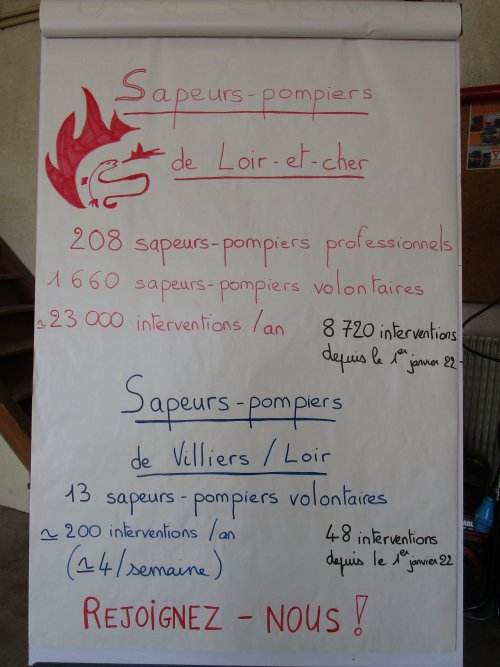 Sapeurs-pompiers
de Loir-et-cher
208 sapeurs-pompiers professionnels
1 660 sapeurs-pompiers volontaires
≃23 000 interventions /an
8 720 interventions
depuis le 1er janvier 22-
Sapeurs-pompiers
de Villiers / Loir
13 sapeurs-pompiers volontaires
≃200 interventions /an
(≃4/semaine)
48 interventions
depuis le 1er janvier 22
REJOIGNEZ - NOUS !